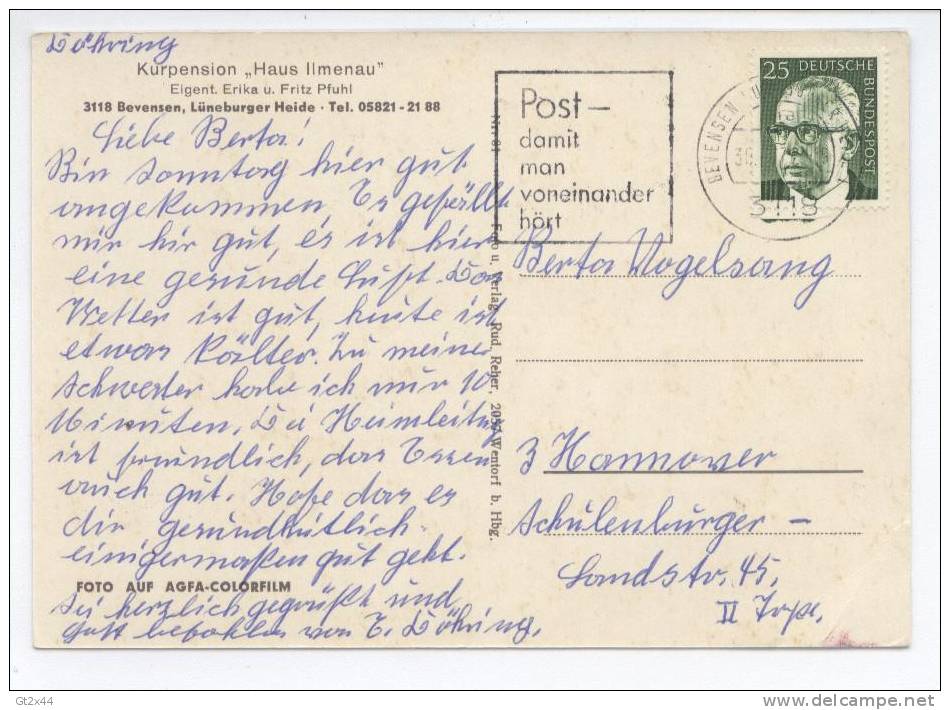 Döhring
Kurpension „Haus Ilmenau"
Eigent. Erika u. Fritz Pfuhl
3118 Bevensen, Lüneburger Heide · Tel. 05821 - 21 88
Liebe Berta!
Bin Sonntag hier gut
angekommen, Es gefällt
mir hir gut, es ist hier
eine gesunde Luft. Das
Wetter ist gut, heute ist
etwas kälter. Zu meiner
Schwester habe ich nur 10
Minuten. Di Heimleitung
ist freundlich, das Essen
auch gut. Hoffe das es
dir gesundheitlich
einigermaßen gut geht.
FOTO AUF AGFA-COLORFILM
Sei herzlich gegrüßt und
Gott befohlen von E. Döhring.
Foto u. Verlag Rud. Reher, 2057 Wentorf b. Hbg.
Post –
damit
man
voneinander
hört
BEVENSEN
3118
25 DEUTSCHE
BUNDESPOST
Berta Vogelsang
3 Hannover
Schulenburger –
Landstr. 45.
II Trpe.
Gt2x44
www.delcampe.net